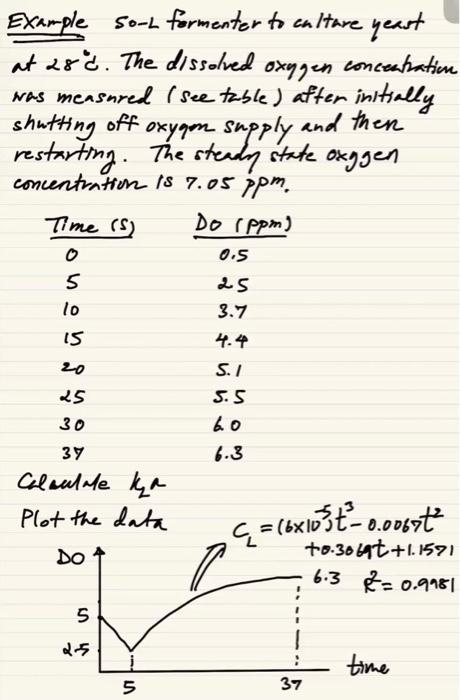 Example 50-L fermenter to culture yeast
at 28°C. The dissolved oxygen concentration
was measured (see table) after initially
shutting off oxygen supply and then
restarting. The steady state oxygen
concentration is 7.05 ppm.
Time (s) DO (ppm)
0 0.5
5 2.5
10 3.7
15 4.4
20 5.1
25 5.5
30 6.0
37 6.3
Calculate kLa
Plot the data
C_L = (6x10^-5)t^3 - 0.0067t^2
+0.3069t+1.1571
DO
6.3 R^2 = 0.9981
5
2.5
5 37 time